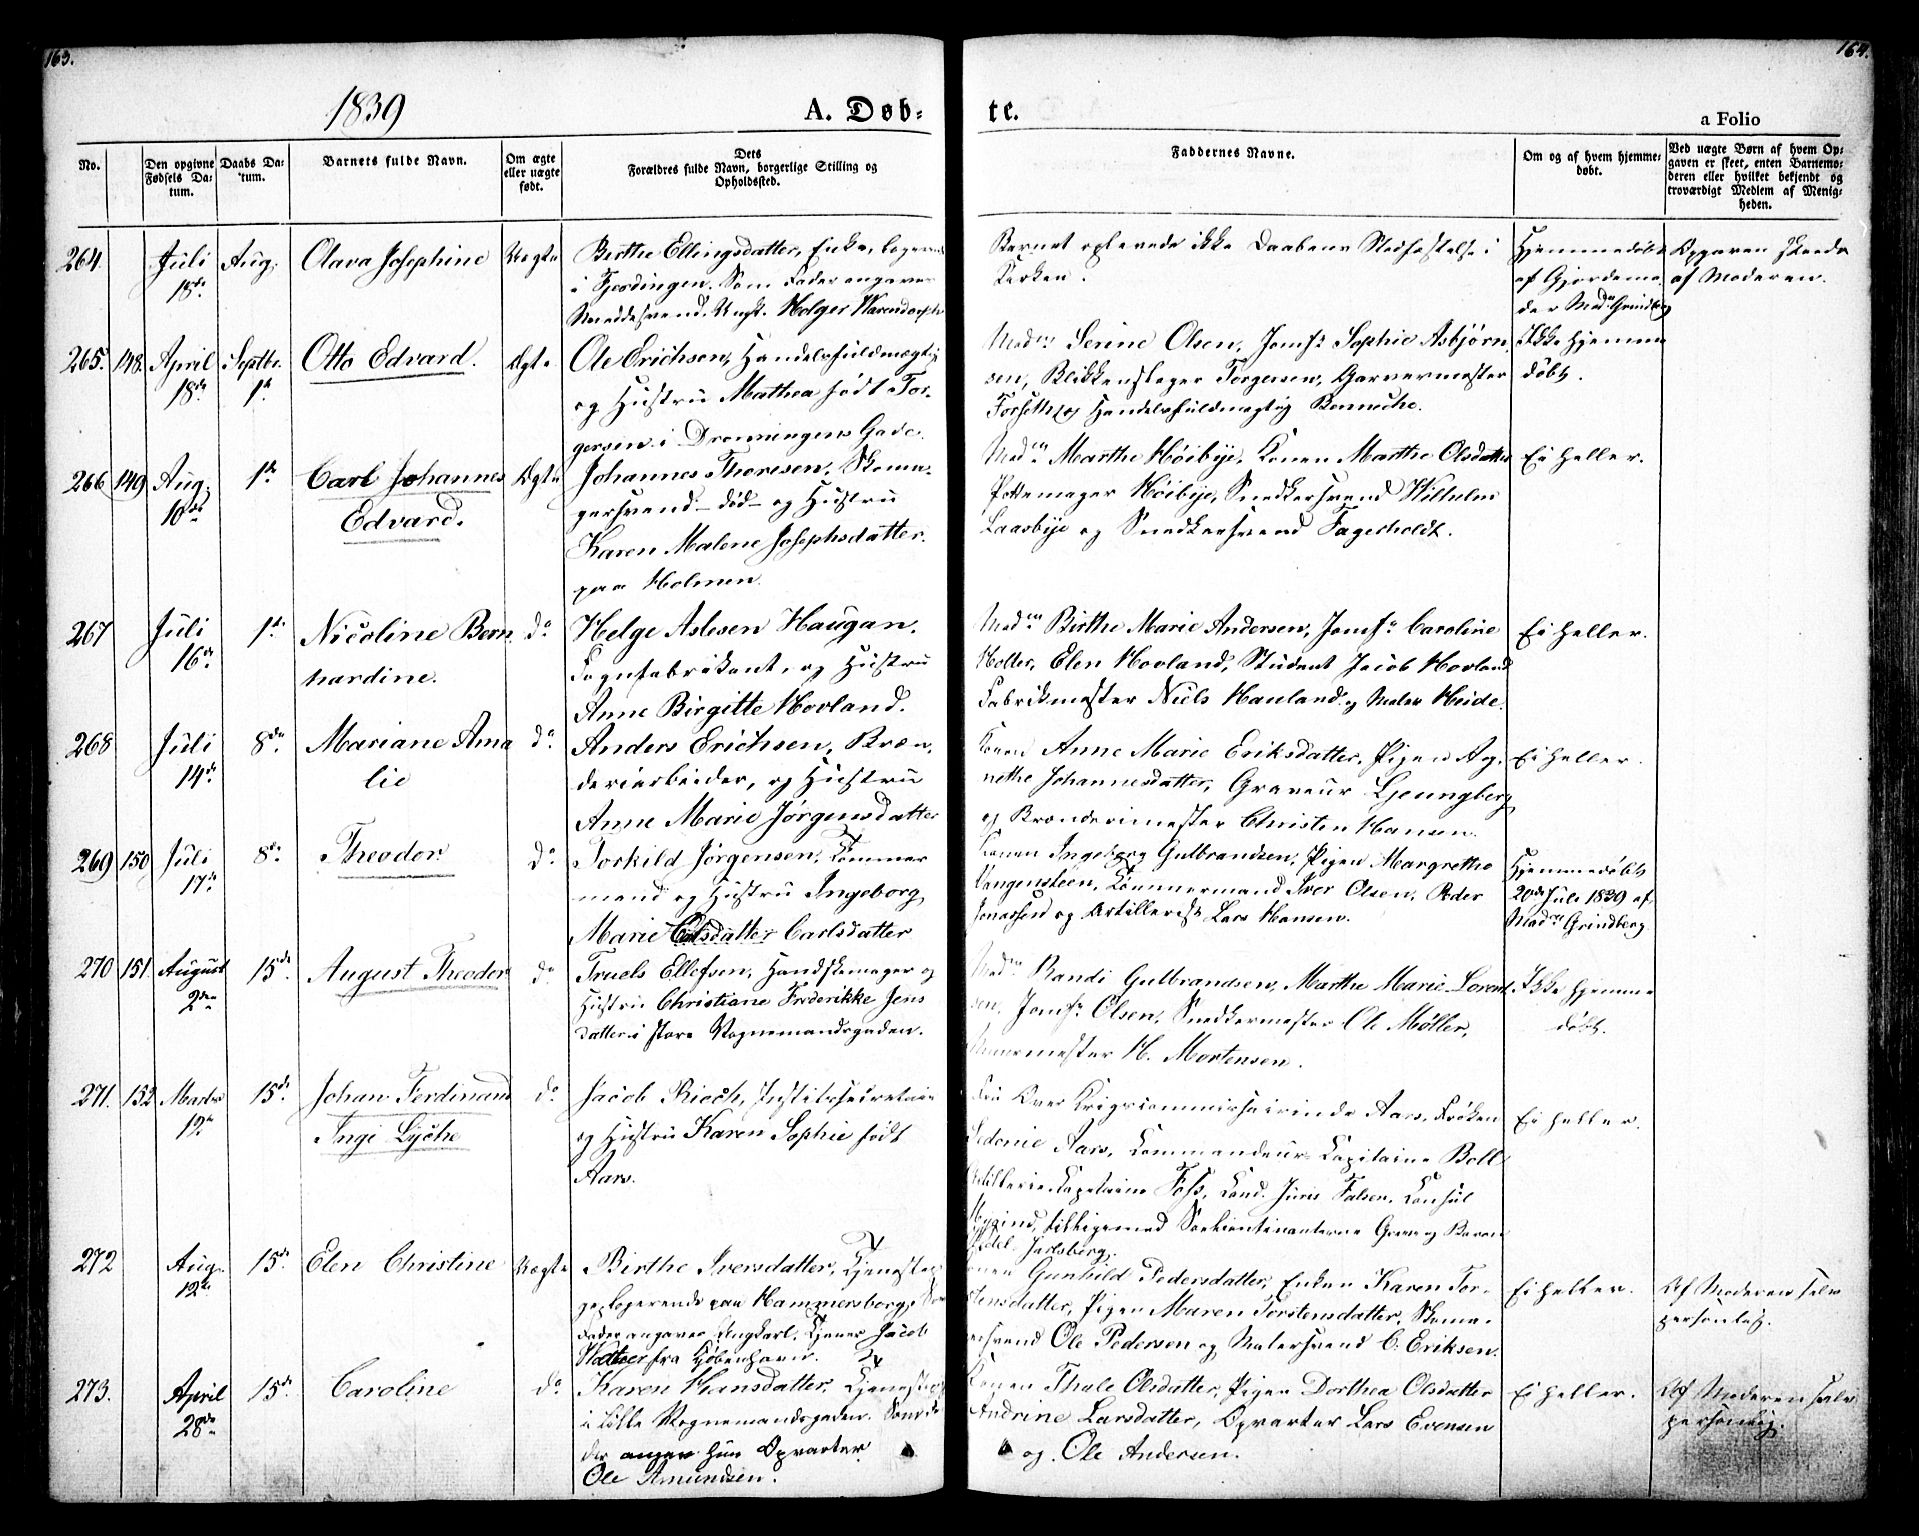 163.
164.
1839
A. Døb-
te.
a Folio
No.
Den opgivne Fødsels Da-tum.
Daabs Da-tum.
Barnets fulde Navn.
Om ægte eller uægte født.
Dets Forældres fulde Navn, borgerlige Stilling og Opholdssted.
Faddernes Navne.
Om og af hvem hjemme-døbt.
Ved uægte Børn af hvem Op-gaven er skeet, enten Barnemo-deren eller hvilket bekjendt og troværdigt Medlem af Menig-heden.
264. Juli 18de Aug. Olava Josephine Uægte
Birthe Ellingsdatter, Enke, logerende
i Fjerdingen. Som Fader angives
Smeddesvend, Ungk. Holger Warendorph
Barnet oplevede ikke Daabens Stadfæstelse i
Kirken.
Hjemmedøbt
af Gjordemo-
der Mad. Grindberg
Opgaven skeede
af Moderen.
265. 148. April 18de Septbr. 1ste Otto Edvard. Ægte
Ole Erichsen, Handelsfuldmægtig
og Hustru Mathea født Tor-
gersen i Dronningens Gade.
Mad. Serine Olsen, Jomfr. Sophie Asbjørn-
sen, Blikkenslager Torgersen, Garvermester
Forseth og Handelsfuldmægtig Benneche.
Ikke hjemme-
døbt.
266 149 Aug. 10de 1ste Carl Johannes
Edvard. Ægte
Johannes Thoresen, Skoma-
gersvend - død - og Hustru
Karen Malene Josephsdatter.
paa Holmen.
Mad. Marthe Høibye, Konen Marthe Olsdatter
Pottemager Høibye, Snedkersvend Wilhelm
Laasbye og Snedkersvend Fagerholdt.
Ei heller.
267 Juli 16de 1ste Nicoline Bern-
hardine. do
Helge Aslesen Haugan,
Fabrikant, og Hustru
Anne Birgitte Hovland.
Mad. Birthe Marie Andersen, Jomfr. Caroline
Holter, Elen Hovland, Student Jacob Hovland
Fabrikmester Niels Hauland og Maler Heide.
Ei heller.
268 Juli 14de 8de Mariane Ama
lie do
Anders Erichsen, Bræn-
deriarbeider, og Hustru
Anne Marie Jørgensdatter
Konen Anne Marie Eriksdatter, Pigen Ag-
nethe Johannesdatter, Graveur Ljungberg
og Brænderimester Christen Hansen.
Ei heller.
269 150 Juli 17de 8de Theodor. do
Torkild Jørgensen, Tømmer-
mand og Hustru Ingeborg
Marie Carlsdatter
Konen Ingeborg Gulbrandsen, Pigen Margrethe
Vangensteen, Tømmermand Iver Olsen, Peder
Jonassen og Artillerist Lars Hansen.
Hjemmedøbt
20de Juli 1839 af
Mad. Grindberg
270 151. August 2den 15de August Theodor do
Truels Ellefsen, Handskemager og
Hustru Christiane Frederikke Jens
datter i store Vognmandsgaden.
Mad. Randi Gulbrandsen, Marthe Marie Lorent-
sen, Jomfr. Olsen, Snedkermester Ole Møller,
Muurmester H. Mortensen.
Ikke hjemme
døbt.
271. 152 Marts 12te 15de Johan Ferdinand
Inge Lyche do
Jacob Rieck,
og Hustru Karen Sophie født
Aars.
Fru Over Krigscommissairinde Aars, Frøken
Sedenie Aars, Commandeur-Capitaine Boll
Artillerie Capitaine Foss, Cand. Juris Falsen, Consul
Mygind, tilligemed Grev og Baron
Wedel-Jarlsberg.
Ei heller.
272 Aug. 12te 15de Elen Christine Uægte
Birthe Iversdatter, Tjenestepi-
ge, logerende paa Hammersborg. Som
Fader angives Ungkarl, Tjener Jacob
fra Kjøbenhavn.
Konen Gunhild Pedersdatter, Enken Karen Tor-
stensdatter, Pigen Maren Torstensdatter, Skoma-
gersvend Ole Pedersen og Malersvend C. Eriksen.
Ei heller.
Af Moderen selv
personlig.
273. April 28de 15de Caroline do
Karen Hansdatter, Tjenestepige
i Lille Vognmandsgaden. Som Fa-
der angiver hun Opvarter
Ole Amundsen.
Konen Thale Olsdatter, Pigen Dorthea Olsdatter
Andrine Larsdatter, Opvarter Lars Evensen
og Ole Andersen.
Ei heller.
Af Moderen selv
personlig.